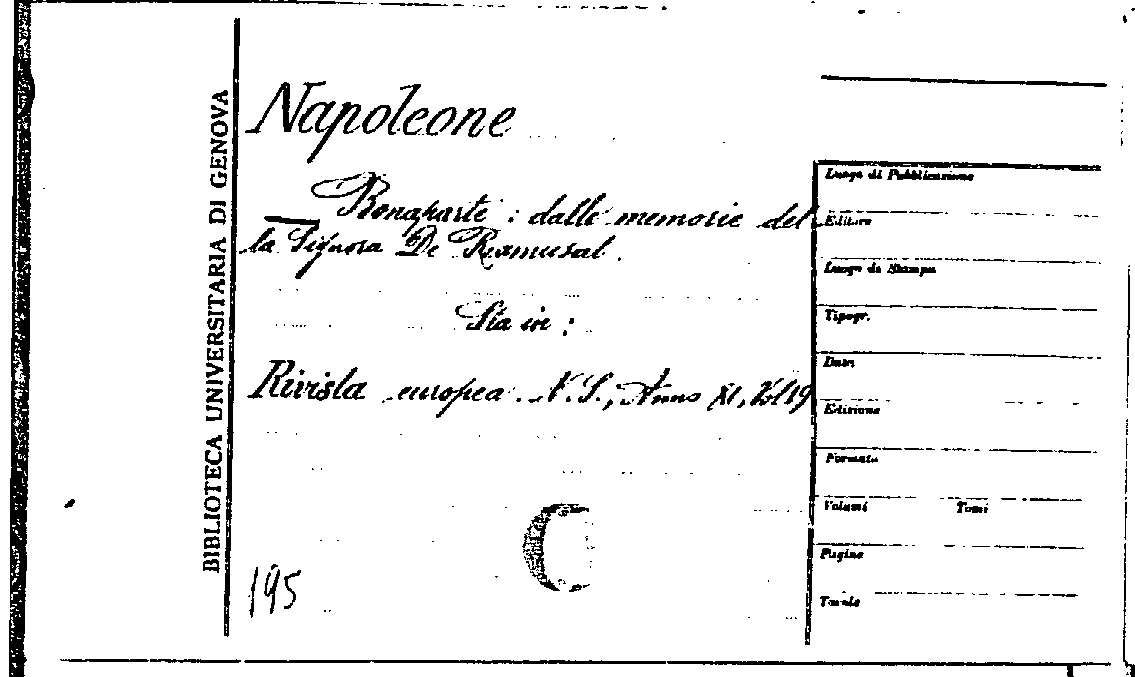 BIBLIOTECA UNIVERSITARIA DI GENOVA
Napoleone
Bonaparte : dalle memorie del
la Signora De Remusat.
Sta in :
Rivista europea. N. S., Anno XI, Vol 19
195
Luogo di Pubblicazione
Editore
Luogo di Stampa
Tipogr.
Data
Edizione
Formato
Volumi Tomi
Pagine
Tavole